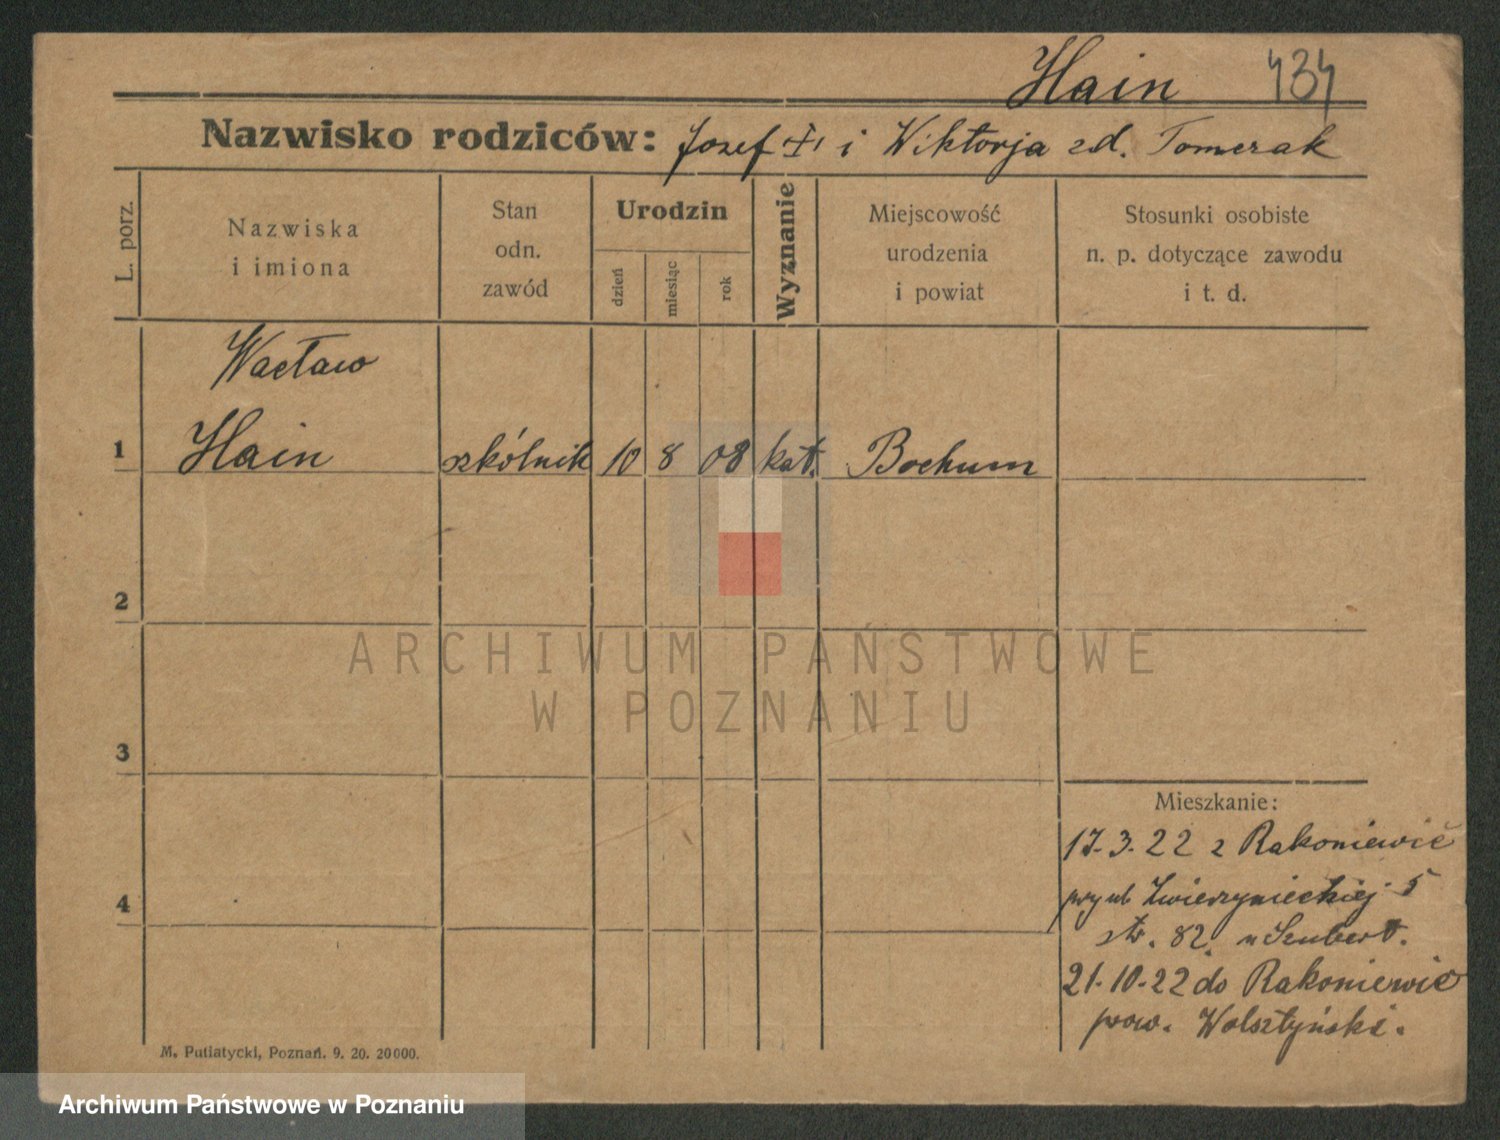 Hain 434
Nazwisko rodziców: Jozef i Wiktorja zd. Tomerak
L. porz.
Nazwiska
i imiona
Stan
odn.
zawód
Urodzin
dzień
miesiąc
rok
Wyznanie
Miejscowość
urodzenia
i powiat
Stosunki osobiste
n. p. dotyczące zawodu
i t. d.
Wacław
1 Hain szkólnik 10 8 08 kat. Bochum
2
ARCHIWUM PAŃSTWOWE
W POZNANIU
3
Mieszkanie:
17.3.22 z Rakoniewic
4
przy ul. Zwierzynieckiej 5
str. 82. u Szubert.
21.10.22 do Rakoniewic
pow. Wolsztyński.
M. Putiatycki, Poznań. 9. 20. 20000.
Archiwum Państwowe w Poznaniu